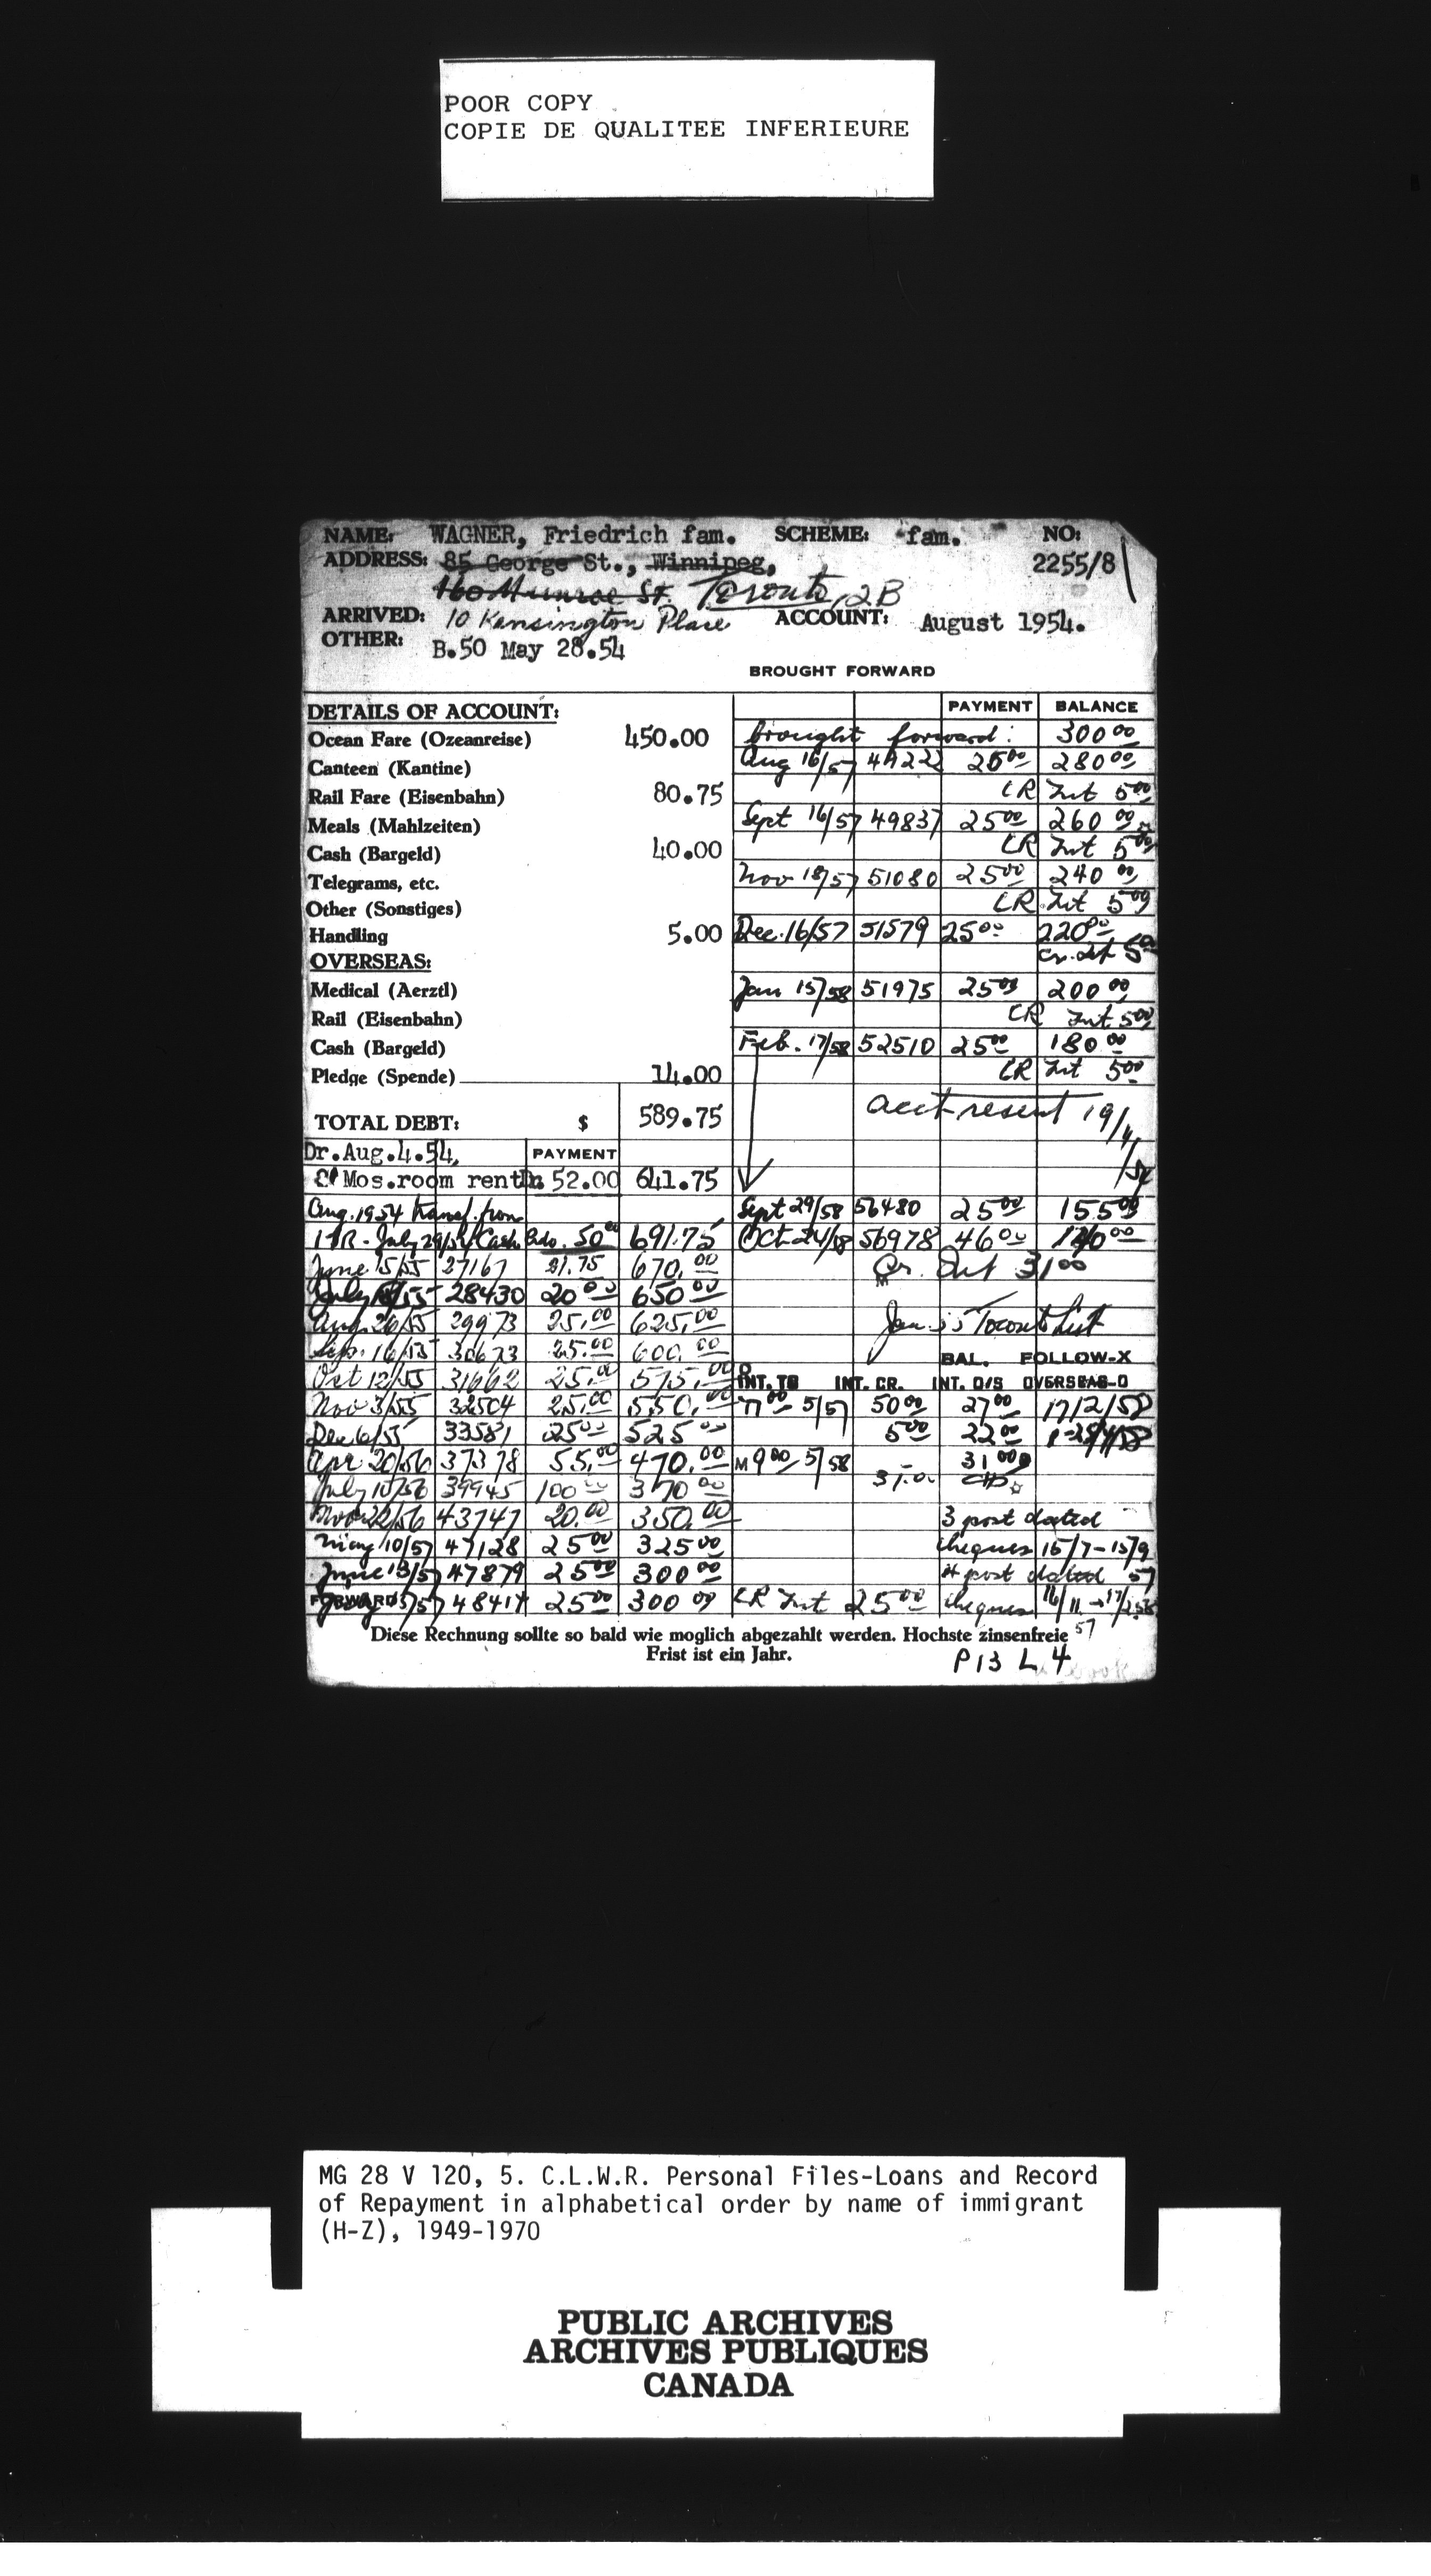 POOR COPY
COPIE DE QUALITEE INFERIEURE
NAME: WAGNER, Friedrich fam. SCHEME: fam. NO:
ADDRESS: 85 George St., Winnipeg, 2255/8
160 Munroe St. Toronto, 2B
ARRIVED: 10 Kensington Place ACCOUNT: August 1954.
OTHER: B.50 May 28.54
BROUGHT FORWARD
DETAILS OF ACCOUNT:
Ocean Fare (Ozeanreise) 450.00
Canteen (Kantine)
Rail Fare (Eisenbahn) 80.75
Meals (Mahlzeiten)
Cash (Bargeld) 40.00
Telegrams, etc.
Other (Sonstiges)
Handling 5.00
OVERSEAS:
Medical (Aerztl)
Rail (Eisenbahn)
Cash (Bargeld)
Pledge (Spende) 14.00
TOTAL DEBT: $ 589.75
Dr. Aug.4.54. PAYMENT
Mos.room rent 52.00 641.75
Aug. 1954 transf. from
July 29/54 Cash 50 00 691.75
June 15/55 27167 21.75 670.00
July 28430 20 00 650 00
Aug 26/55 29973 25.00 625.00
Sep. 16/55 30673 25.00 600.00
Oct 12/55 31662 25.00 575.00
Nov 3/55 32504 25.00 550.00
Dec 6/55 33581 25 00 525 00
Apr 20/56 37378 55.00 470.00
July 10/56 39945 100 00 370 00
Nov 22/56 43747 20.00 350.00
May 10/57 47128 25 00 325 00
June 13/57 47879 25 00 300 00
FORWARD 48414 25 00 300 00
PAYMENT BALANCE
brought forward: 300 00
Aug 16/57 49222 25 00 280 00
CR Int 5 00
Sept 16/57 49837 25 00 260 00
CR Int 5 00
Nov 18/57 51080 25 00 240 00
CR Int 5 00
Dec. 16/57 51579 25 00 220 00
Cr. Int 5 00
Jan 15/58 51975 25 00 200 00
CR Int 5 00
Feb. 17/58 52510 25 00 180 00
CR Int 5 00
acct resent 19/4/54
Sept 29/58 56480 25 00 155 00
Oct 24/58 56978 46 00 00
Cr. Int 31 00
Jan 55 Toronto List
BAL. FOLLOW-X
INT. TO INT. CR. INT. O/S OVERSEAS-O
77 00 5/57 50 00 27 00 17/2/58
5 00 22 00
M 9 00 5/58 31.00 31 00
3 post dated
cheques 15/7-15/9
4 post dated 57
CR Int 25 00 cheques 16/11 → 17/2.58
57
Diese Rechnung sollte so bald wie moglich abgezahlt werden. Hochste zinsenfreie
Frist ist ein Jahr.
P13 L 4
MG 28 V 120, 5. C.L.W.R. Personal Files-Loans and Record
of Repayment in alphabetical order by name of immigrant
(H-Z), 1949-1970
PUBLIC ARCHIVES
ARCHIVES PUBLIQUES
CANADA